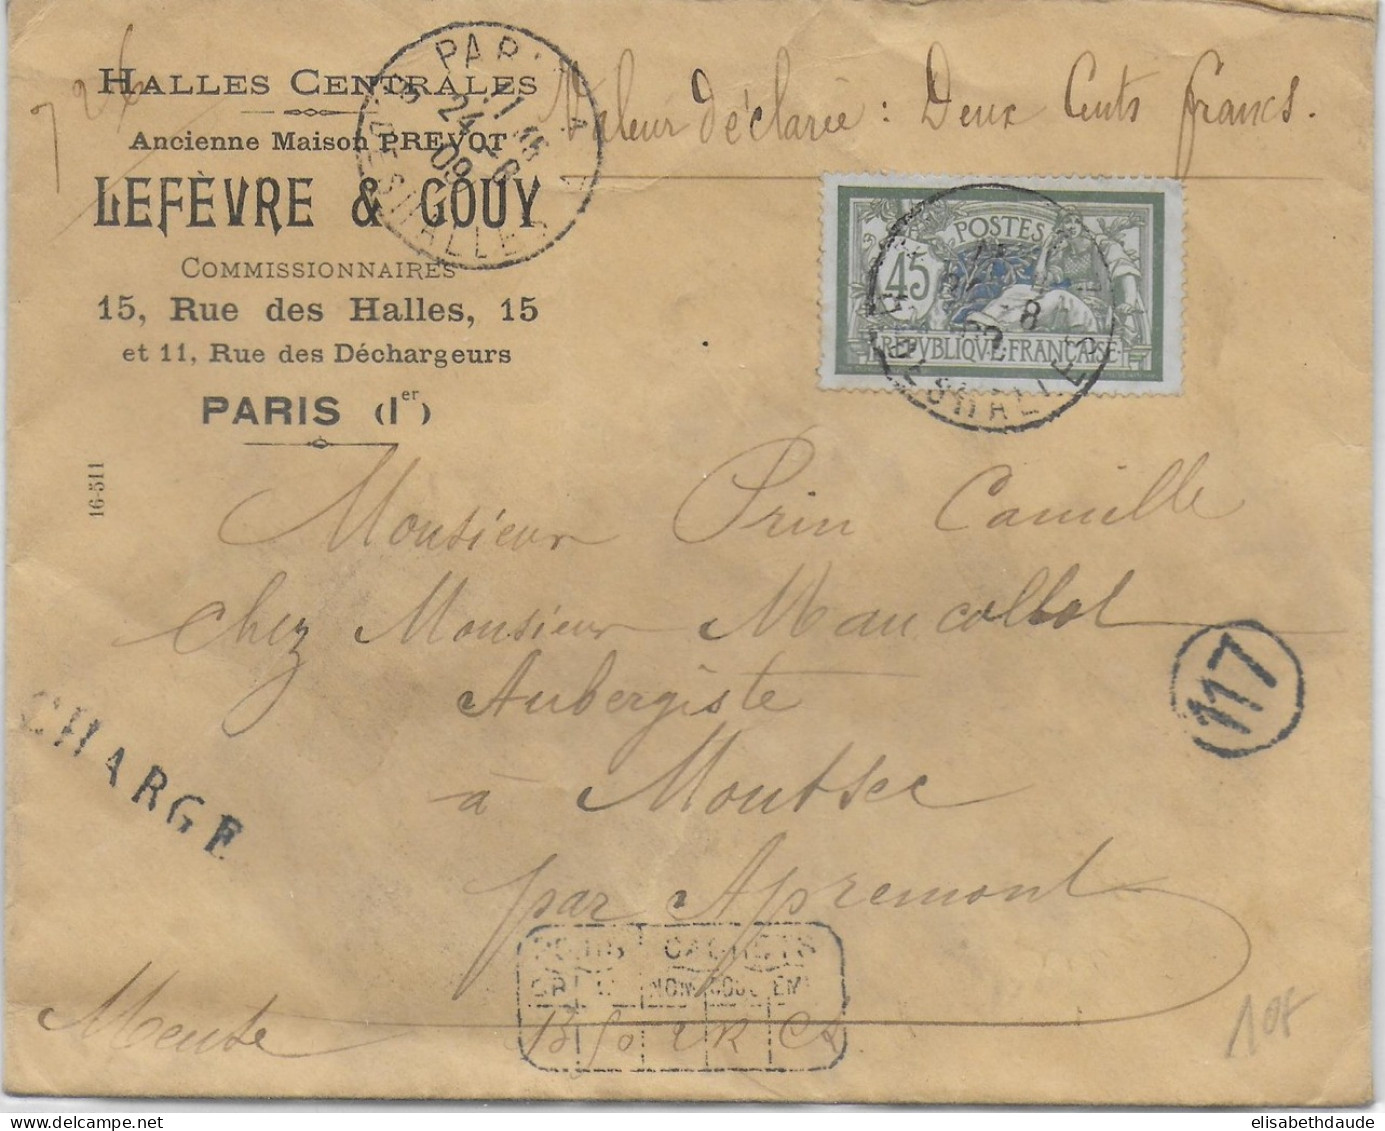 726
HALLES CENTRALES
Ancienne Maison PREVOT
LEFÈVRE & GOUY
COMMISSIONNAIRES
15, Rue des Halles, 15
et 11, Rue des Déchargeurs
PARIS (Ier)
16-511
PARIS
11 45
24 - 6
09
DES HALLES
Valeur déclarée : Deux Cents francs.
POSTES
45
REPVBLIQVE FRANÇAISE
Monsieur Prin Camille
chez Monsieur Maucollot
Aubergiste
à Montsec
par Apremont
Meuse
CHARGE
117
POIDS CACHETS
NOM COUL EM
10F
elisabethdaude